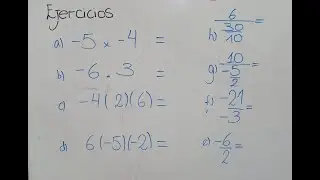 Ejercicios
a) -5 x -4 =
b) -6 . 3 =
c) -4(2)(6) =
d) 6(-5)(-2) =
h) 6/(30/10) =
g) -10/(-5/2) =
f) -21/-3 =
e) -6/2 =